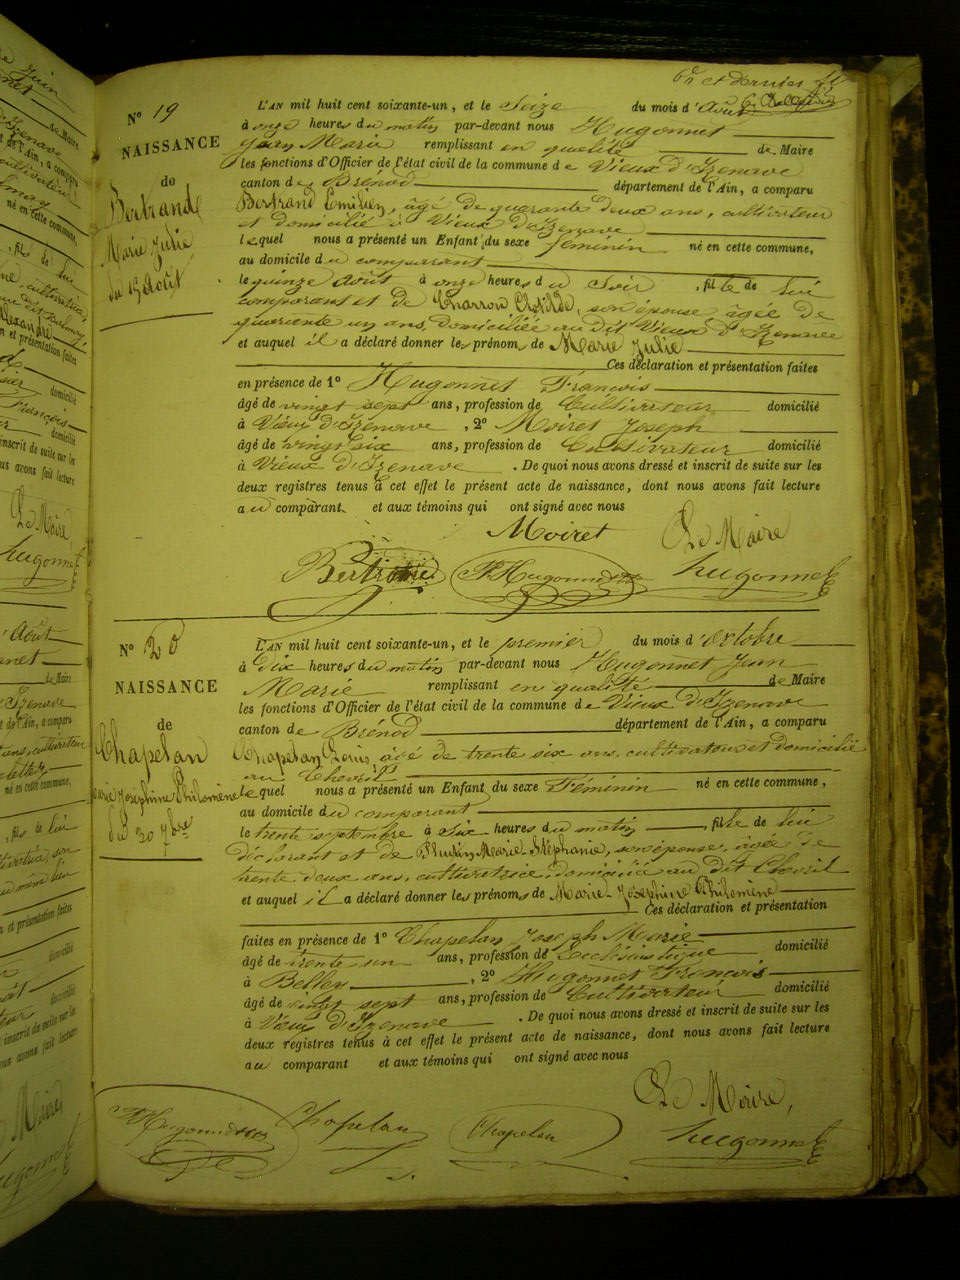 6e et dernier
N° 19
NAISSANCE
de
Bertrand
Marie Julie
du 15 Août
L'AN mil huit cent soixante-un, et le Seize du mois d'Août
à onze heures du matin par-devant nous Hugonnet
Jean Marie remplissant en qualité de Maire
les fonctions d'Officier de l'état civil de la commune de Vieux d'Izenave
canton de Brénod département de l'Ain, a comparu
Bertrand Emilien, âgé de quarante deux ans, cultivateur
et domicilié à Vieux d'Izenave
lequel nous a présenté un Enfant du sexe féminin né en cette commune,
au domicile du comparant
le quinze Août à onze heures du Soir, fille de lui
comparant et de Charron Clotilde, son épouse âgée de
quarante un ans, domiciliée au dit Vieux d'Izenave
et auquel il a déclaré donner les prénoms de Marie Julie
Ces déclaration et présentation faites
en présence de 1° Hugonnet François
âgé de vingt sept ans, profession de Cultivateur domicilié
à Vieux d'Izenave, 2° Moiret Joseph
âgé de vingt six ans, profession de Cultivateur domicilié
à Vieux d'Izenave. De quoi nous avons dressé et inscrit de suite sur les
deux registres tenus à cet effet le présent acte de naissance, dont nous avons fait lecture
au comparant et aux témoins qui ont signé avec nous
Moiret Le Maire
Bertrand Fs Hugonnet hugonnet
N° 20
NAISSANCE
de
Chapelan
Marie Josephine Philomène
du 30 7bre
L'AN mil huit cent soixante-un, et le premier du mois d'Octobre
à dix heures du matin par-devant nous Hugonnet Jean
Marie remplissant en qualité de Maire
les fonctions d'Officier de l'état civil de la commune de Vieux d'Izenave
canton de Brénod département de l'Ain, a comparu
Chapelan Louis, agé de trente six ans, cultivateur et domicilié
au Chevril
lequel nous a présenté un Enfant du sexe Féminin né en cette commune,
au domicile du comparant
le trente septembre à six heures du matin, fille de lui
déclarant et de Marie Stéphanie, son épouse, agée de
trente deux ans, cultivatrice, domiciliée au dit Chevril
et auquel il a déclaré donner les prénoms de Marie-Josephine Philomène
Ces déclaration et présentation
faites en présence de 1° Chapelan Joseph Marie
âgé de trente un ans, profession de Ecclésiastique domicilié
à Belley, 2° Hugonnet François
âgé de vingt sept ans, profession de Cultivateur domicilié
à Vieux d'Izenave. De quoi nous avons dressé et inscrit de suite sur les
deux registres tenus à cet effet le présent acte de naissance, dont nous avons fait lecture
au comparant et aux témoins qui ont signé avec nous
Le Maire,
Fs Hugonnet Chapelan Chapelan hugonnet